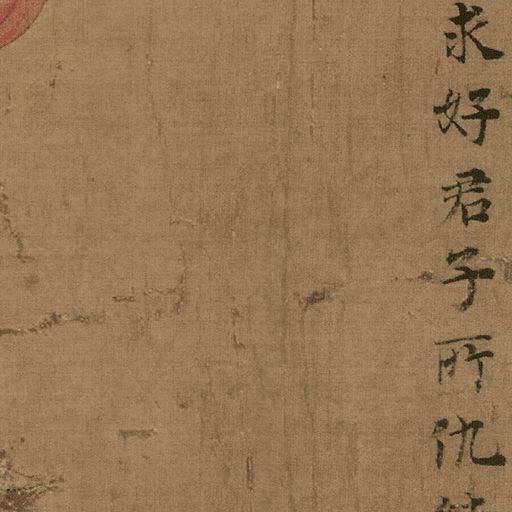 求好君子所仇